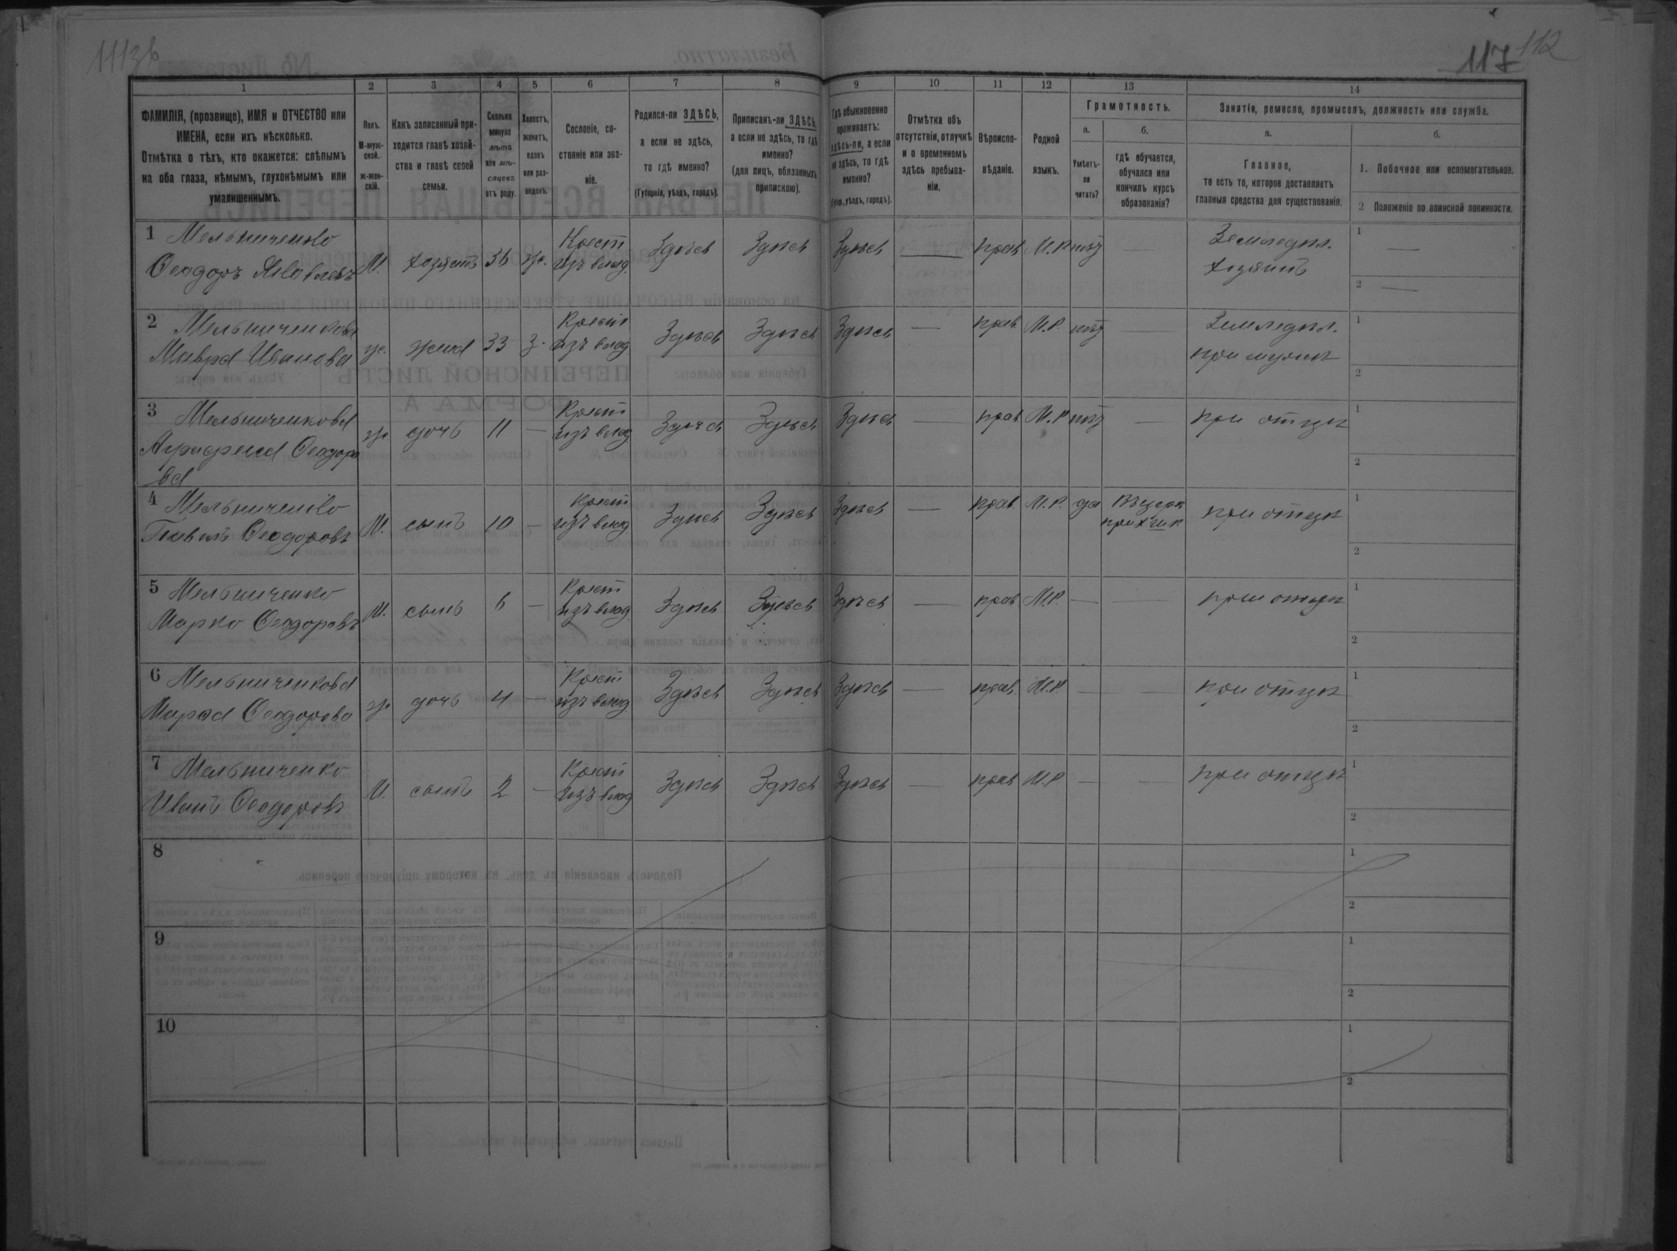 111зб
117 112
1 2 3 4 5 6 7 8 9 10 11 12 13 14
ФАМИЛІЯ, (прозвище), ИМЯ и ОТЧЕСТВО или
ИМЕНА, если ихъ нѣсколько.
Отмѣтка о тѣхъ, кто окажется: слѣпымъ
на оба глаза, нѣмымъ, глухонѣмымъ или
умалишеннымъ.
Полъ.
М-муж-
ской.
ж-жен-
скій.
Какъ записанный при-
ходится главѣ хозяй-
ства и главѣ своей
семьи.
Сколько
минуло
лѣтъ
или мѣ-
сяцевъ
отъ роду.
Холостъ,
женатъ,
вдовъ
или раз-
веденъ.
Сословіе, со-
стояніе или зва-
ніе.
Родился-ли ЗДѢСЬ,
а если не здѣсь,
то гдѣ именно?
(Губернія, уѣздъ, городъ).
Приписанъ-ли ЗДѢСЬ,
а если не здѣсь, то гдѣ
именно?
(для лицъ, обязанныхъ
припискою).
Гдѣ обыкновенно
проживаетъ:
здѣсь-ли, а если
не здѣсь, то гдѣ
именно?
(губ., уѣздъ, городъ).
Отмѣтка объ
отсутствіи, отлучкѣ
и о временномъ
здѣсь пребыва-
ніи.
Вѣроиспо-
вѣданіе.
Родной
языкъ.
Грамотность.
а.
Умѣетъ-
ли
читать?
б.
гдѣ обучается,
обучался или
кончилъ курсъ
образованія?
Занятіе, ремесло, промыселъ, должность или служба.
а.
Главное,
то есть то, которое доставляетъ
главныя средства для существованія.
б.
1. Побочное или вспомогательное.
2 Положеніе по воинской повинности.
1 Мельниченко Крест Здѣсь Здѣсь Здѣсь — прав М.Р нѣт — Земледѣл. 1 —
Ѳеодоръ М. хозяинъ 36 ж. изъ влад хозяинъ 2 —
2 Мельниченкова Крест Здѣсь Здѣсь Здѣсь — прав М.Р. нѣт — Земледѣл. 1
Мавра Иванова ж. жена 33 з. изъ влад при мужѣ 2
3 Мельниченкова Крест Здѣсь Здѣсь Здѣсь — прав М.Р нѣт — при отцѣ 1
Агрифена Ѳеодоро ж. дочь 11 — изъ влад 2
ва
4 Мельниченко Крест Здѣсь Здѣсь Здѣсь — прав. М.Р. да при отцѣ 1
Ѳеодоровъ М. сынъ 10 — изъ влад 2
5 Мельниченко Крест Здѣсь Здѣсь Здѣсь — прав М.Р. — — при отцѣ 1
Марко Ѳеодоровъ М. сынъ 6 — изъ влад 2
6 Мельниченкова Крест Здѣсь Здѣсь Здѣсь — прав. М.Р — — при отцѣ 1
Ѳеодорова ж. дочь 4 изъ влад 2
7 Мельниченко Крест Здѣсь Здѣсь Здѣсь — прав М.Р — — при отцѣ 1
Иванъ Ѳеодоровъ М. сынъ 2 — изъ влад 2
8 1
2
9 1
2
10 1
2